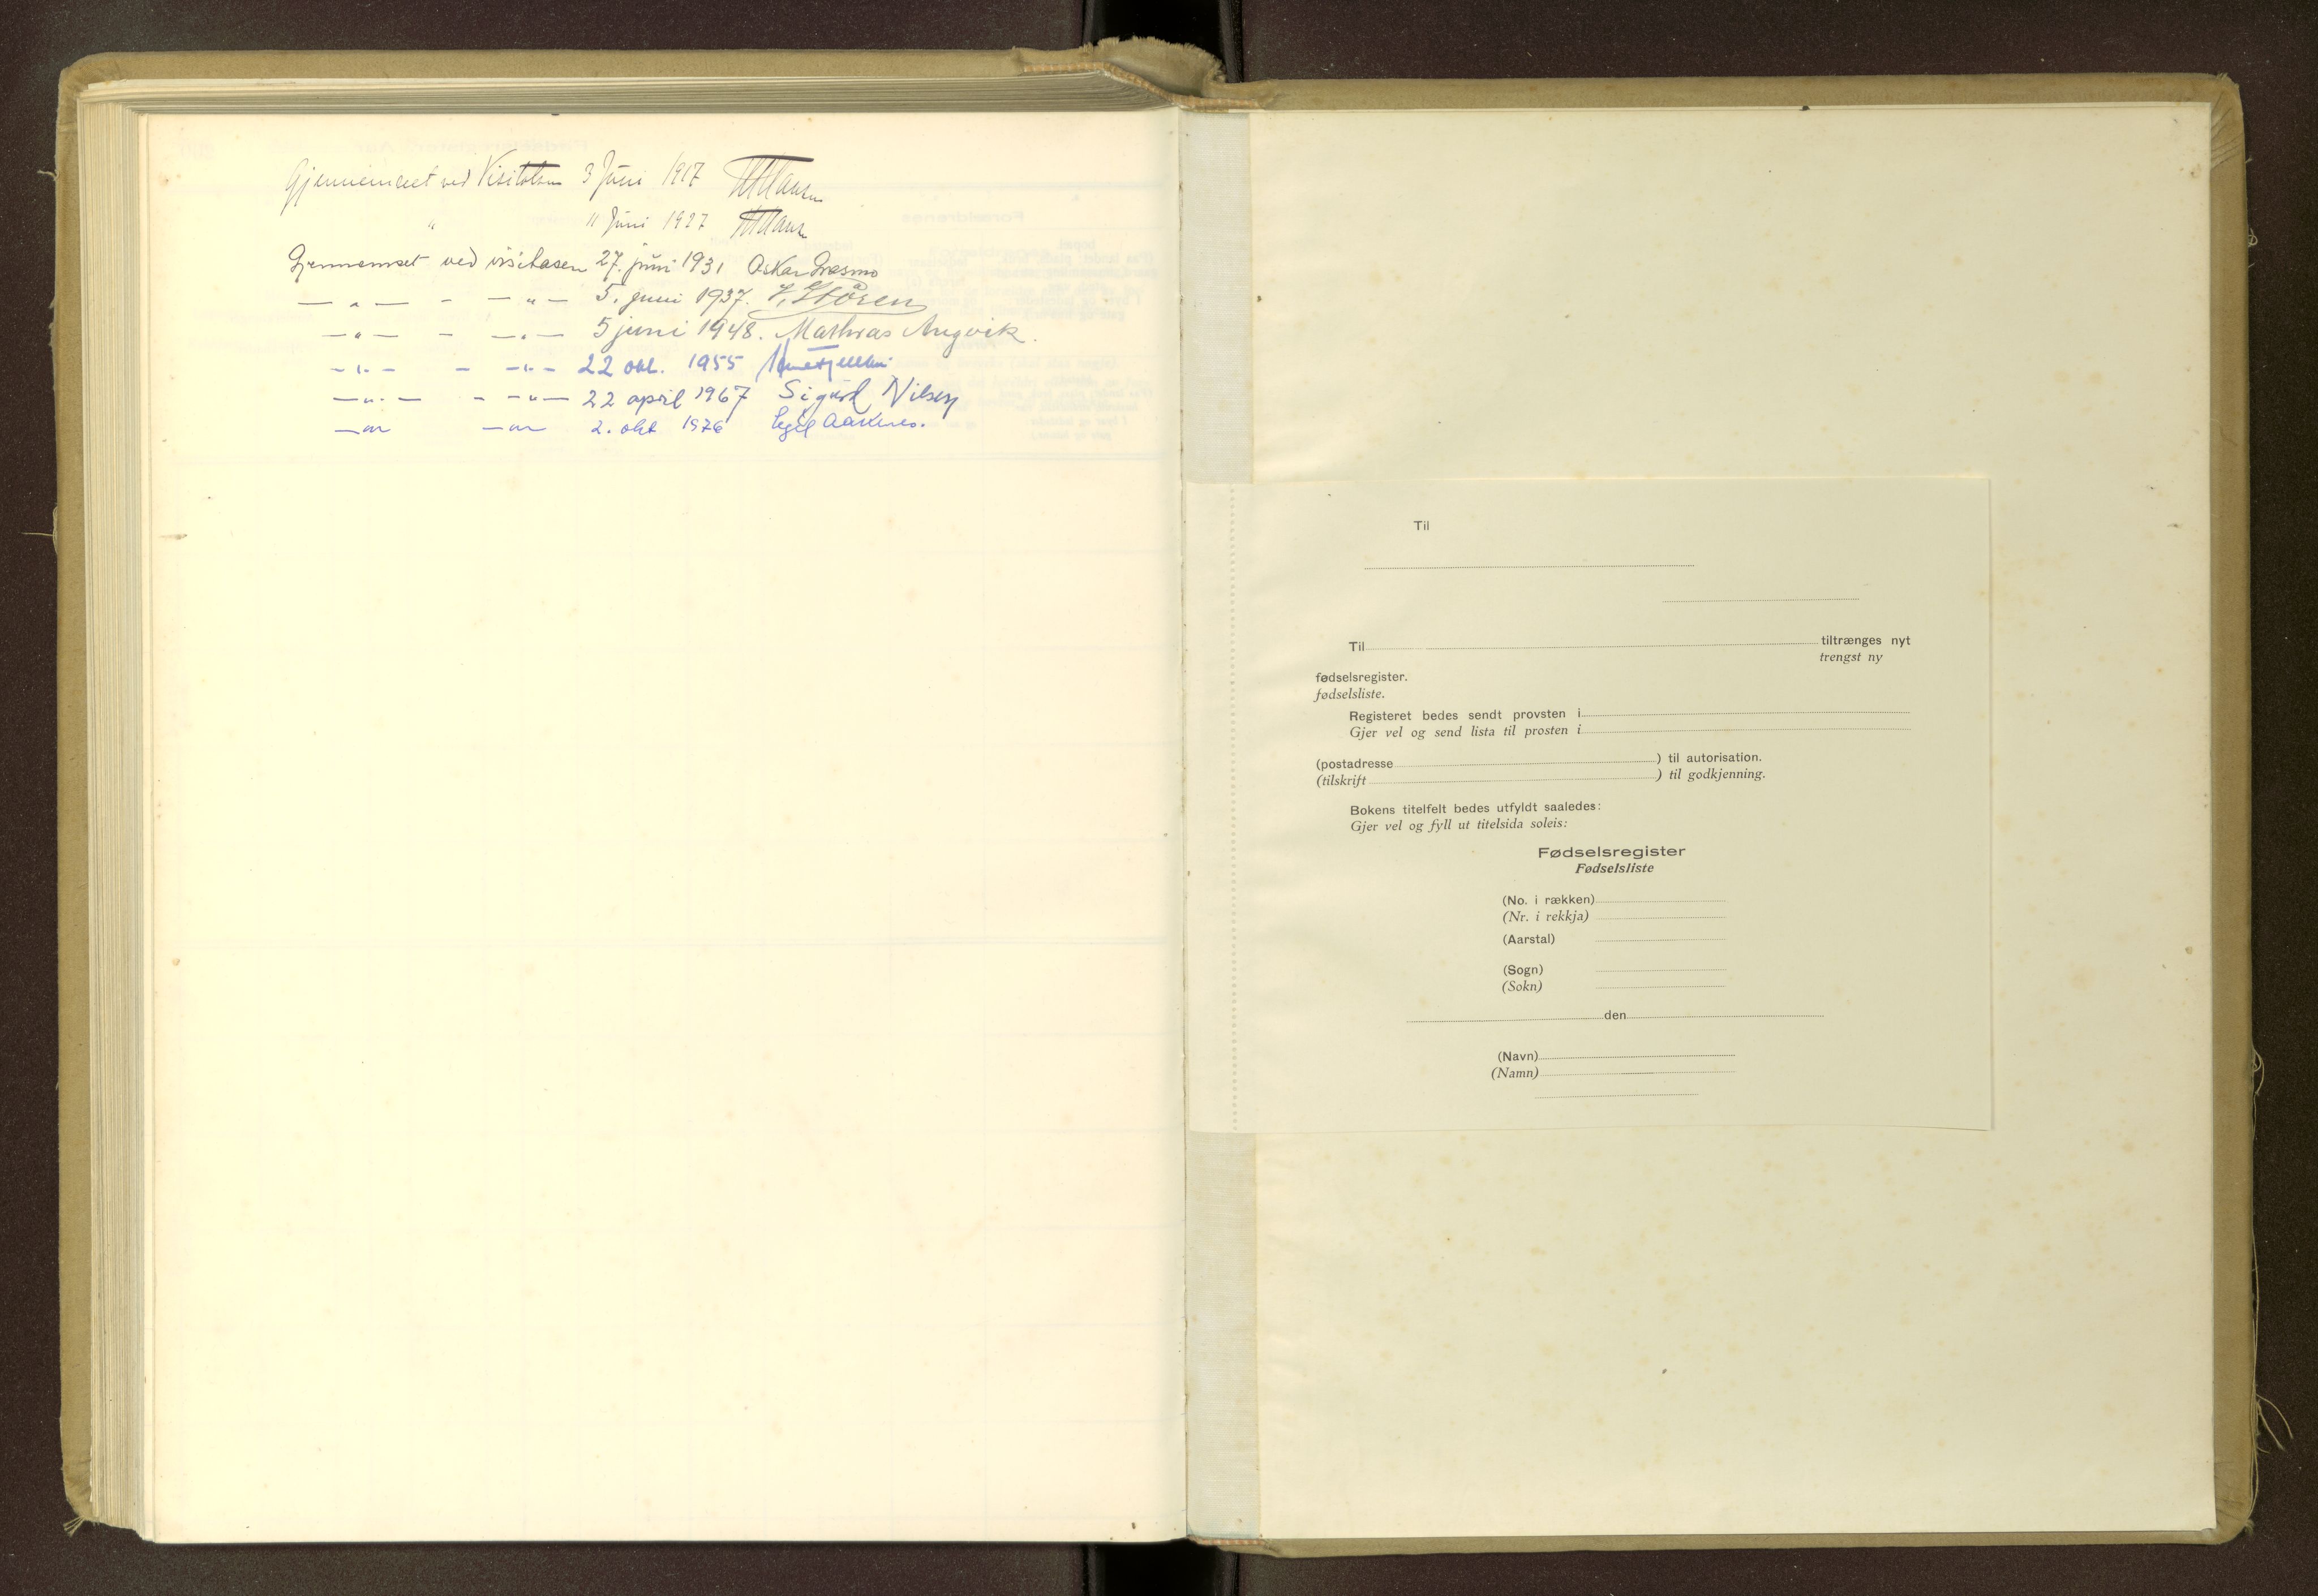 Gjennemseet ved Visitatsen 3 Juni 1917
" 11 Juni 1927
Gjennemset ved visitasen 27. juni 1931 Oskar
— " — - — " — 5. juni 1937. J. Støren
— " — - — " — 5 juni 1948. Mathias Angvik.
— " — - — " — 22 okt. 1955
— " — - — " — 22 april 1967 Sigurd Nilsen
— " — — " — 2. okt 1976 Egil Aakenes.
Til
Til tiltrænges nyt
trengst ny
fødselsregister.
fødselsliste.
Registeret bedes sendt provsten i
Gjer vel og send lista til prosten i
(postadresse ) til autorisation.
(tilskrift ) til godkjenning.
Bokens titelfelt bedes utfyldt saaledes:
Gjer vel og fyll ut titelsida soleis:
Fødselsregister
Fødselsliste
(No. i rækken)
(Nr. i rekkja)
(Aarstal)
(Sogn)
(Sokn)
den
(Navn)
(Namn)